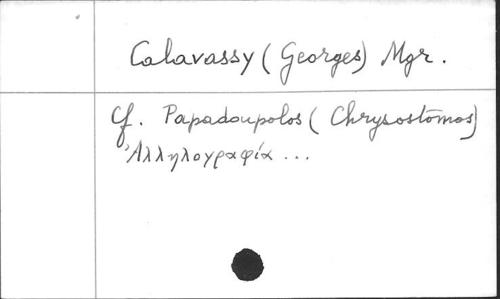 Calavassy (Georges) Mgr.
cf. Papadoupolos (Chrysostomos)
Ἀλληλογραφία ...